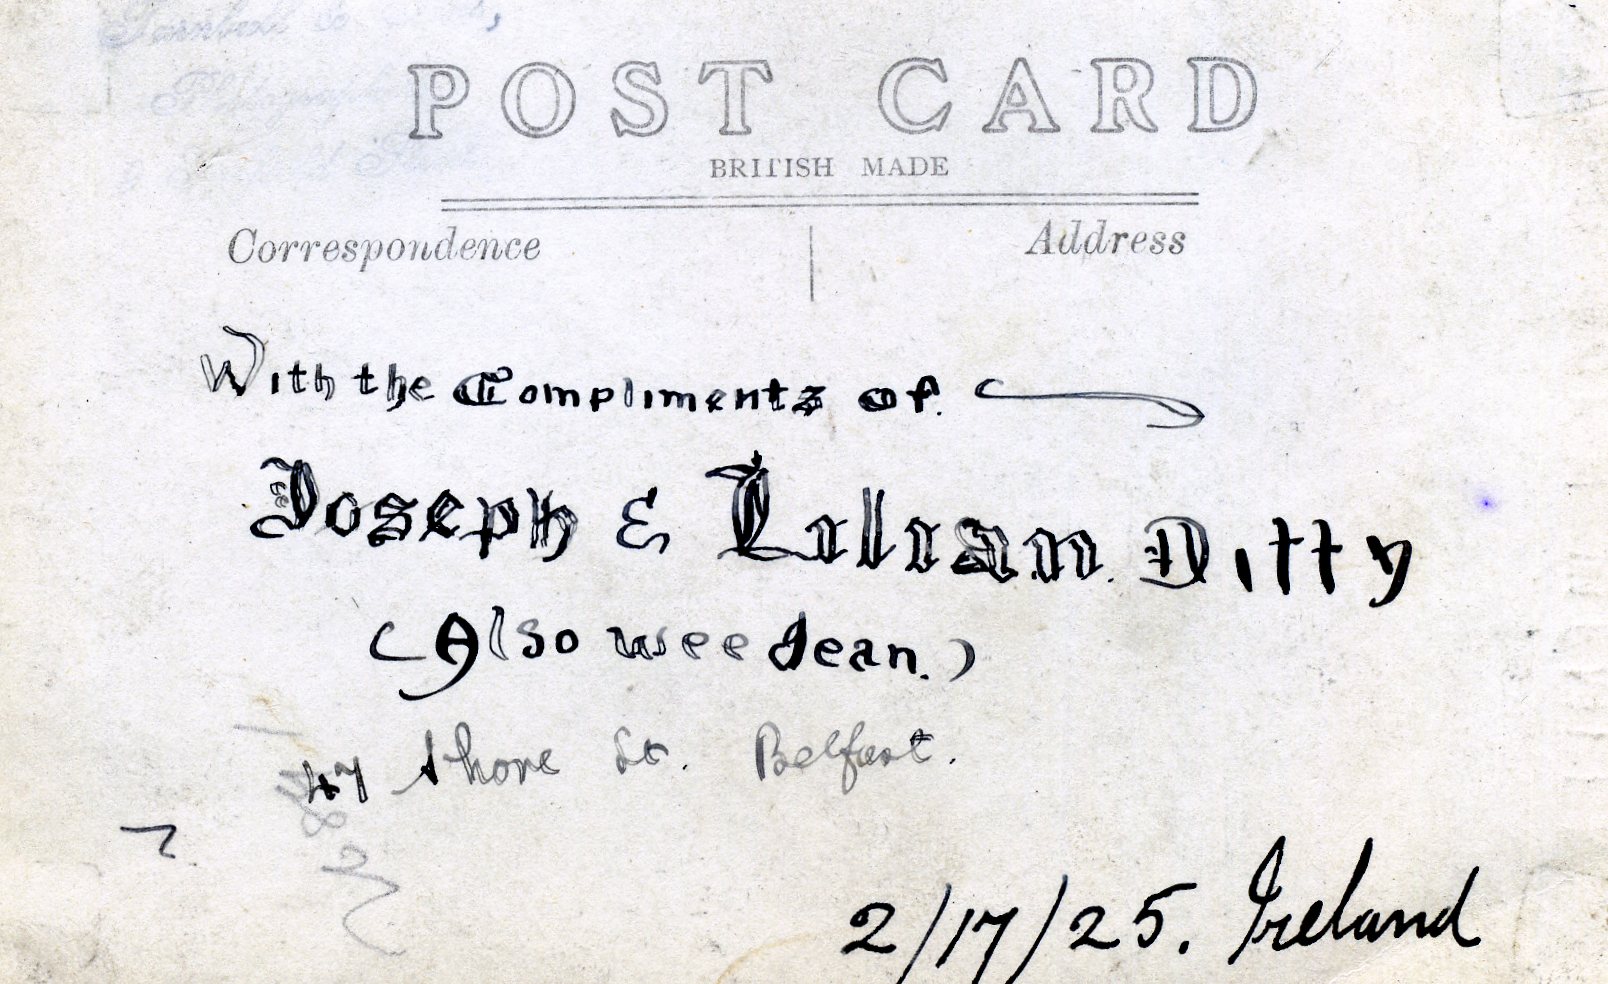 POST CARD
BRITISH MADE
Correspondence
Address
With the Compliments of.
Joseph & Lilian Ditty
(Also wee Jean.)
47 Shore St. Belfast.
2/17/25. Ireland